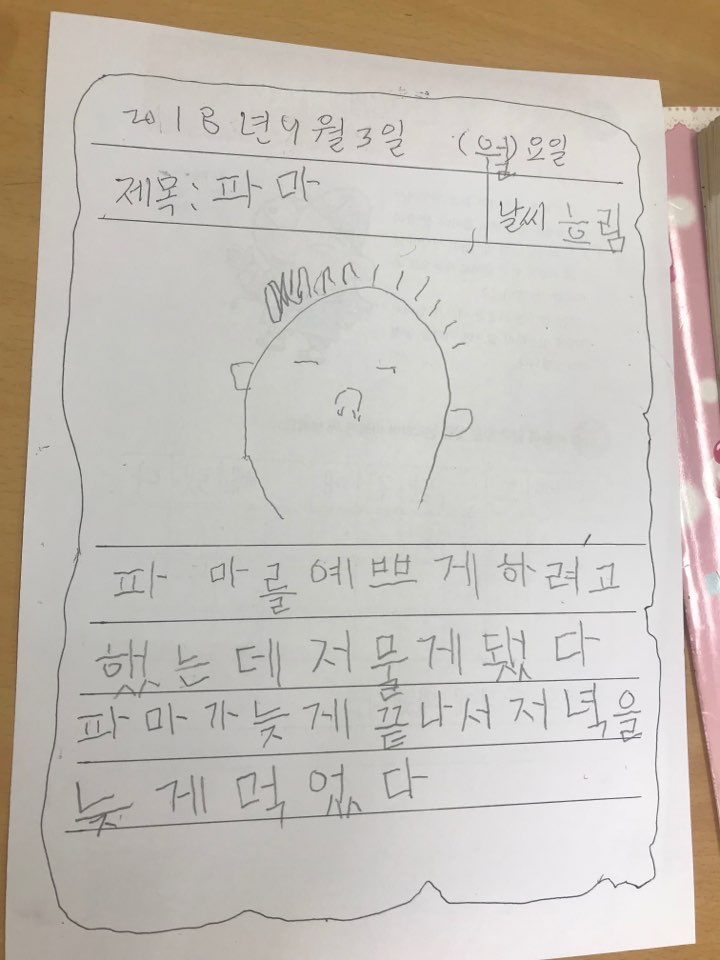 2018년 9월 3일 (월)요일
제목: 파마
날씨 흐림
파마를 예쁘게하려고
했는데 저물게됐다
파마가늦게 끝나서저녁을
늦게먹었다